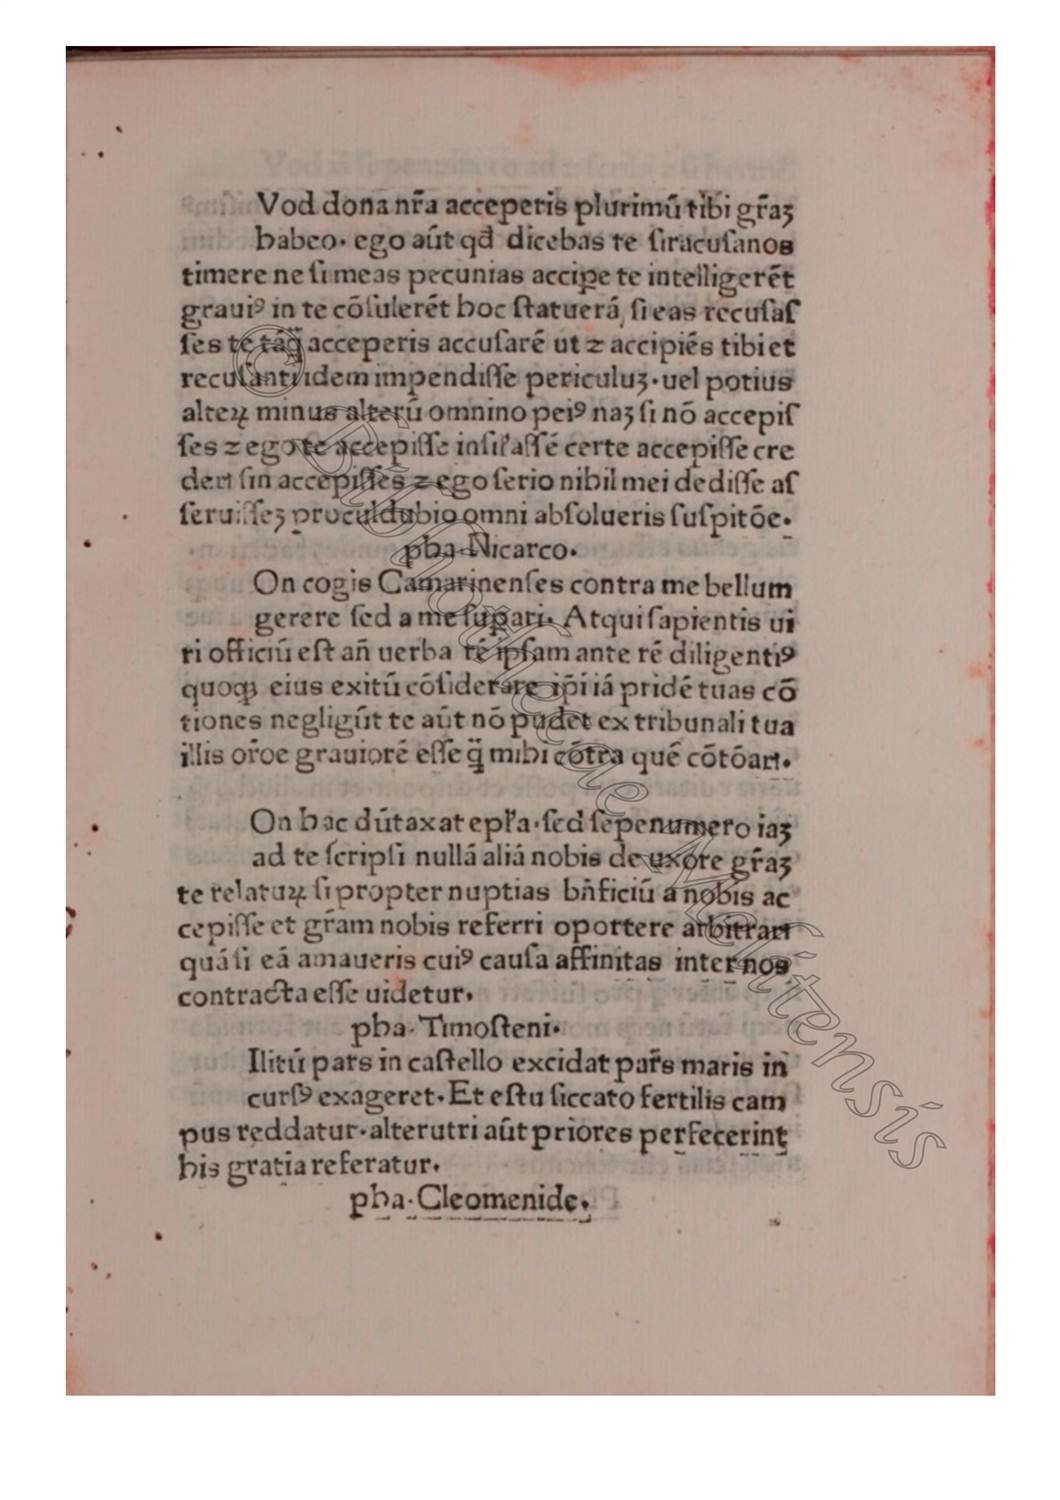 Vod dona nr̃a acceperis plurimũ tibi gr̃aꝫ
habeo. ego aũt qđ dicebas te ſiracuſanos
timere ne ſi meas pecunias accipe te intelligerẽt
grauiꝰ in te cõſulerẽt hoc ſtatuerã, ſi eas recuſaſ
ſes te tãq̃ acceperis accuſarẽ ut ⁊ accipiẽs tibi et
recuſanti idem impendiſſe periculuꝫ. uel potius
alteꝝ minus alterũ omnino peiꝰ naꝫ ſi nõ accepiſ
ſes ⁊ ego te accepiſſe certe accepiſſe cre
deri ſin accepiſſes ⁊ ego ſerio nihil mei dediſſe aſ
ſeruiſſeꝫ proculdubio omni abſolueris ſuſpitõe.
pha. Nicarco.
On cogis Camarinenſes contra me bellum
gerere ſed a me ſuꝑari. Atqui ſapientis ui
ri officiũ eſt añ uerba rẽ ipſam ante rẽ diligentiꝰ
quoqꝫ eius exitũ cõſiderare ip̃i iã pridẽ tuas cõ
tiones negligũt te aũt nõ pudet ex tribunali tua
illis or̃oe grauiorẽ eſſe q̃ mihi cõtra quẽ cõtõari.
On hac dũtaxat epľa. ſed ſepenumero iaꝫ
ad te ſcripſi nullã aliã nobis de uxore gr̃aꝫ
te relatuꝝ ſi propter nuptias bñficiũ a nobis ac
cepiſſe et gr̃am nobis referri oportere arbitrari
quãſi eã amaueris cuiꝰ cauſa affinitas inter nos
contracta eſſe uidetur.
pha. Timoſteni.
Ilitũ pars in caſtello excidat par̃s maris in
curſꝰ exageret. Et eſtu ſiccato fertilis cam
pus reddatur. alterutri aũt priores perfecerint
his gratia referatur.
pha. Cleomenide.
© Bibliothecae Melitensis